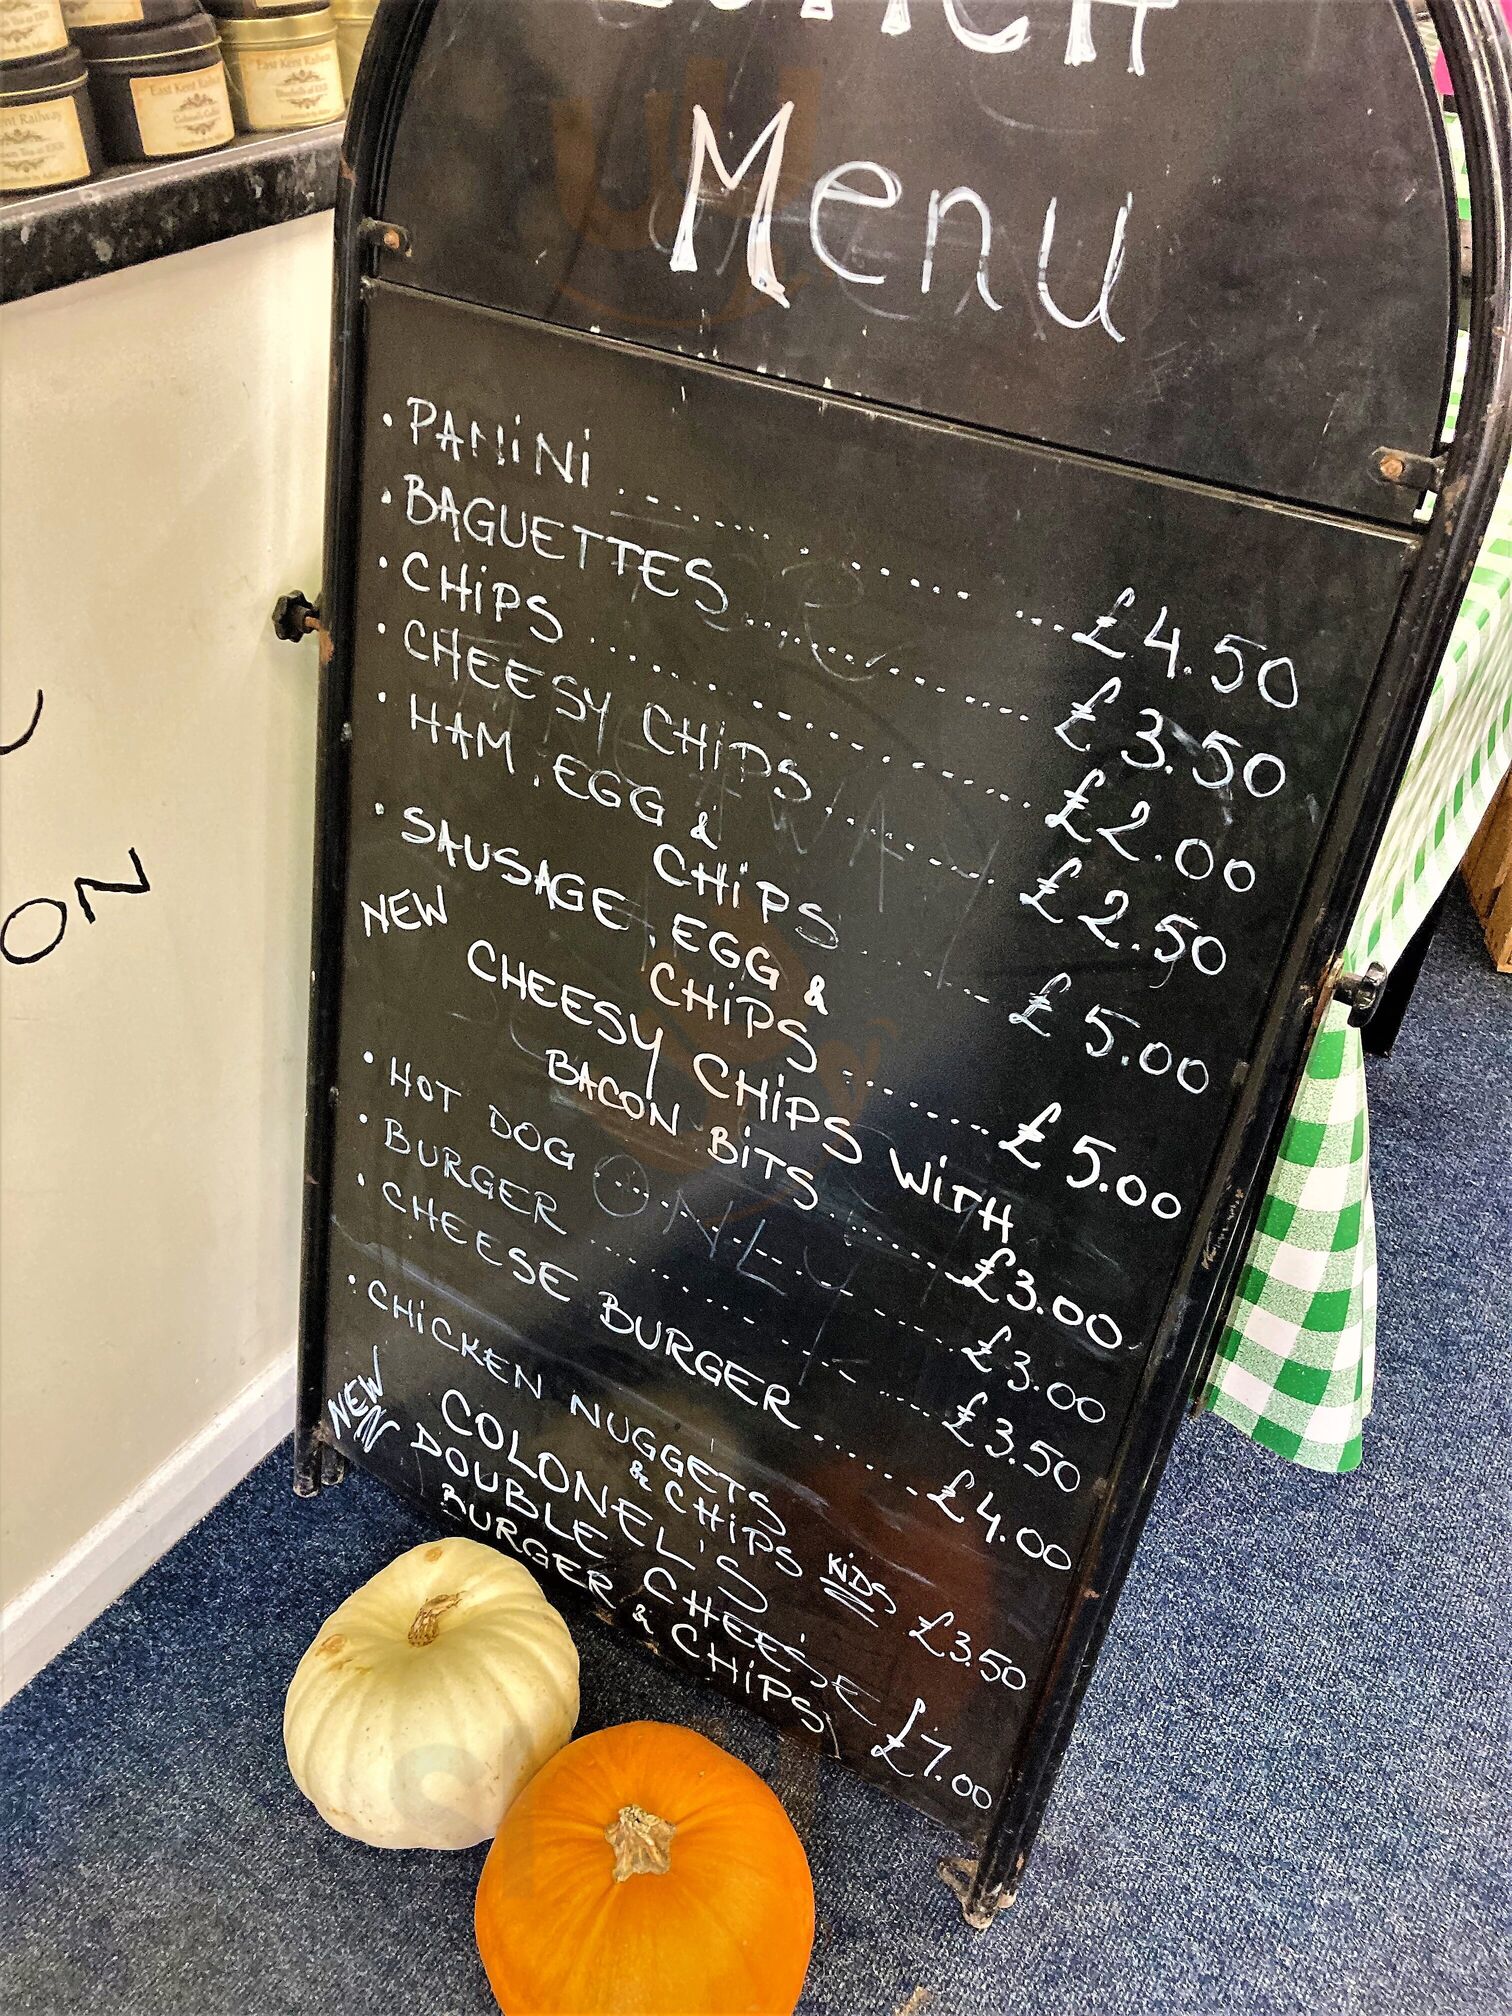 LUNCH
Menu
• PANINI .......... £4.50
• BAGUETTES .......... £3.50
• CHIPS .......... £2.00
• CHEESY CHIPS .......... £2.50
• HAM, EGG &
CHIPS .......... £5.00
• SAUSAGE, EGG &
CHIPS .......... £5.00
NEW CHEESY CHIPS WITH
BACON BITS .......... £3.00
• HOT DOG .......... £3.00
• BURGER .......... £3.50
• CHEESE BURGER .......... £4.00
• CHICKEN NUGGETS
& CHIPS KIDS £3.50
NEW COLONEL'S
DOUBLE CHEESE
BURGER & CHIPS £7.00
East Kent Railway
East Kent Railway
ent Railway
ON
ONLY